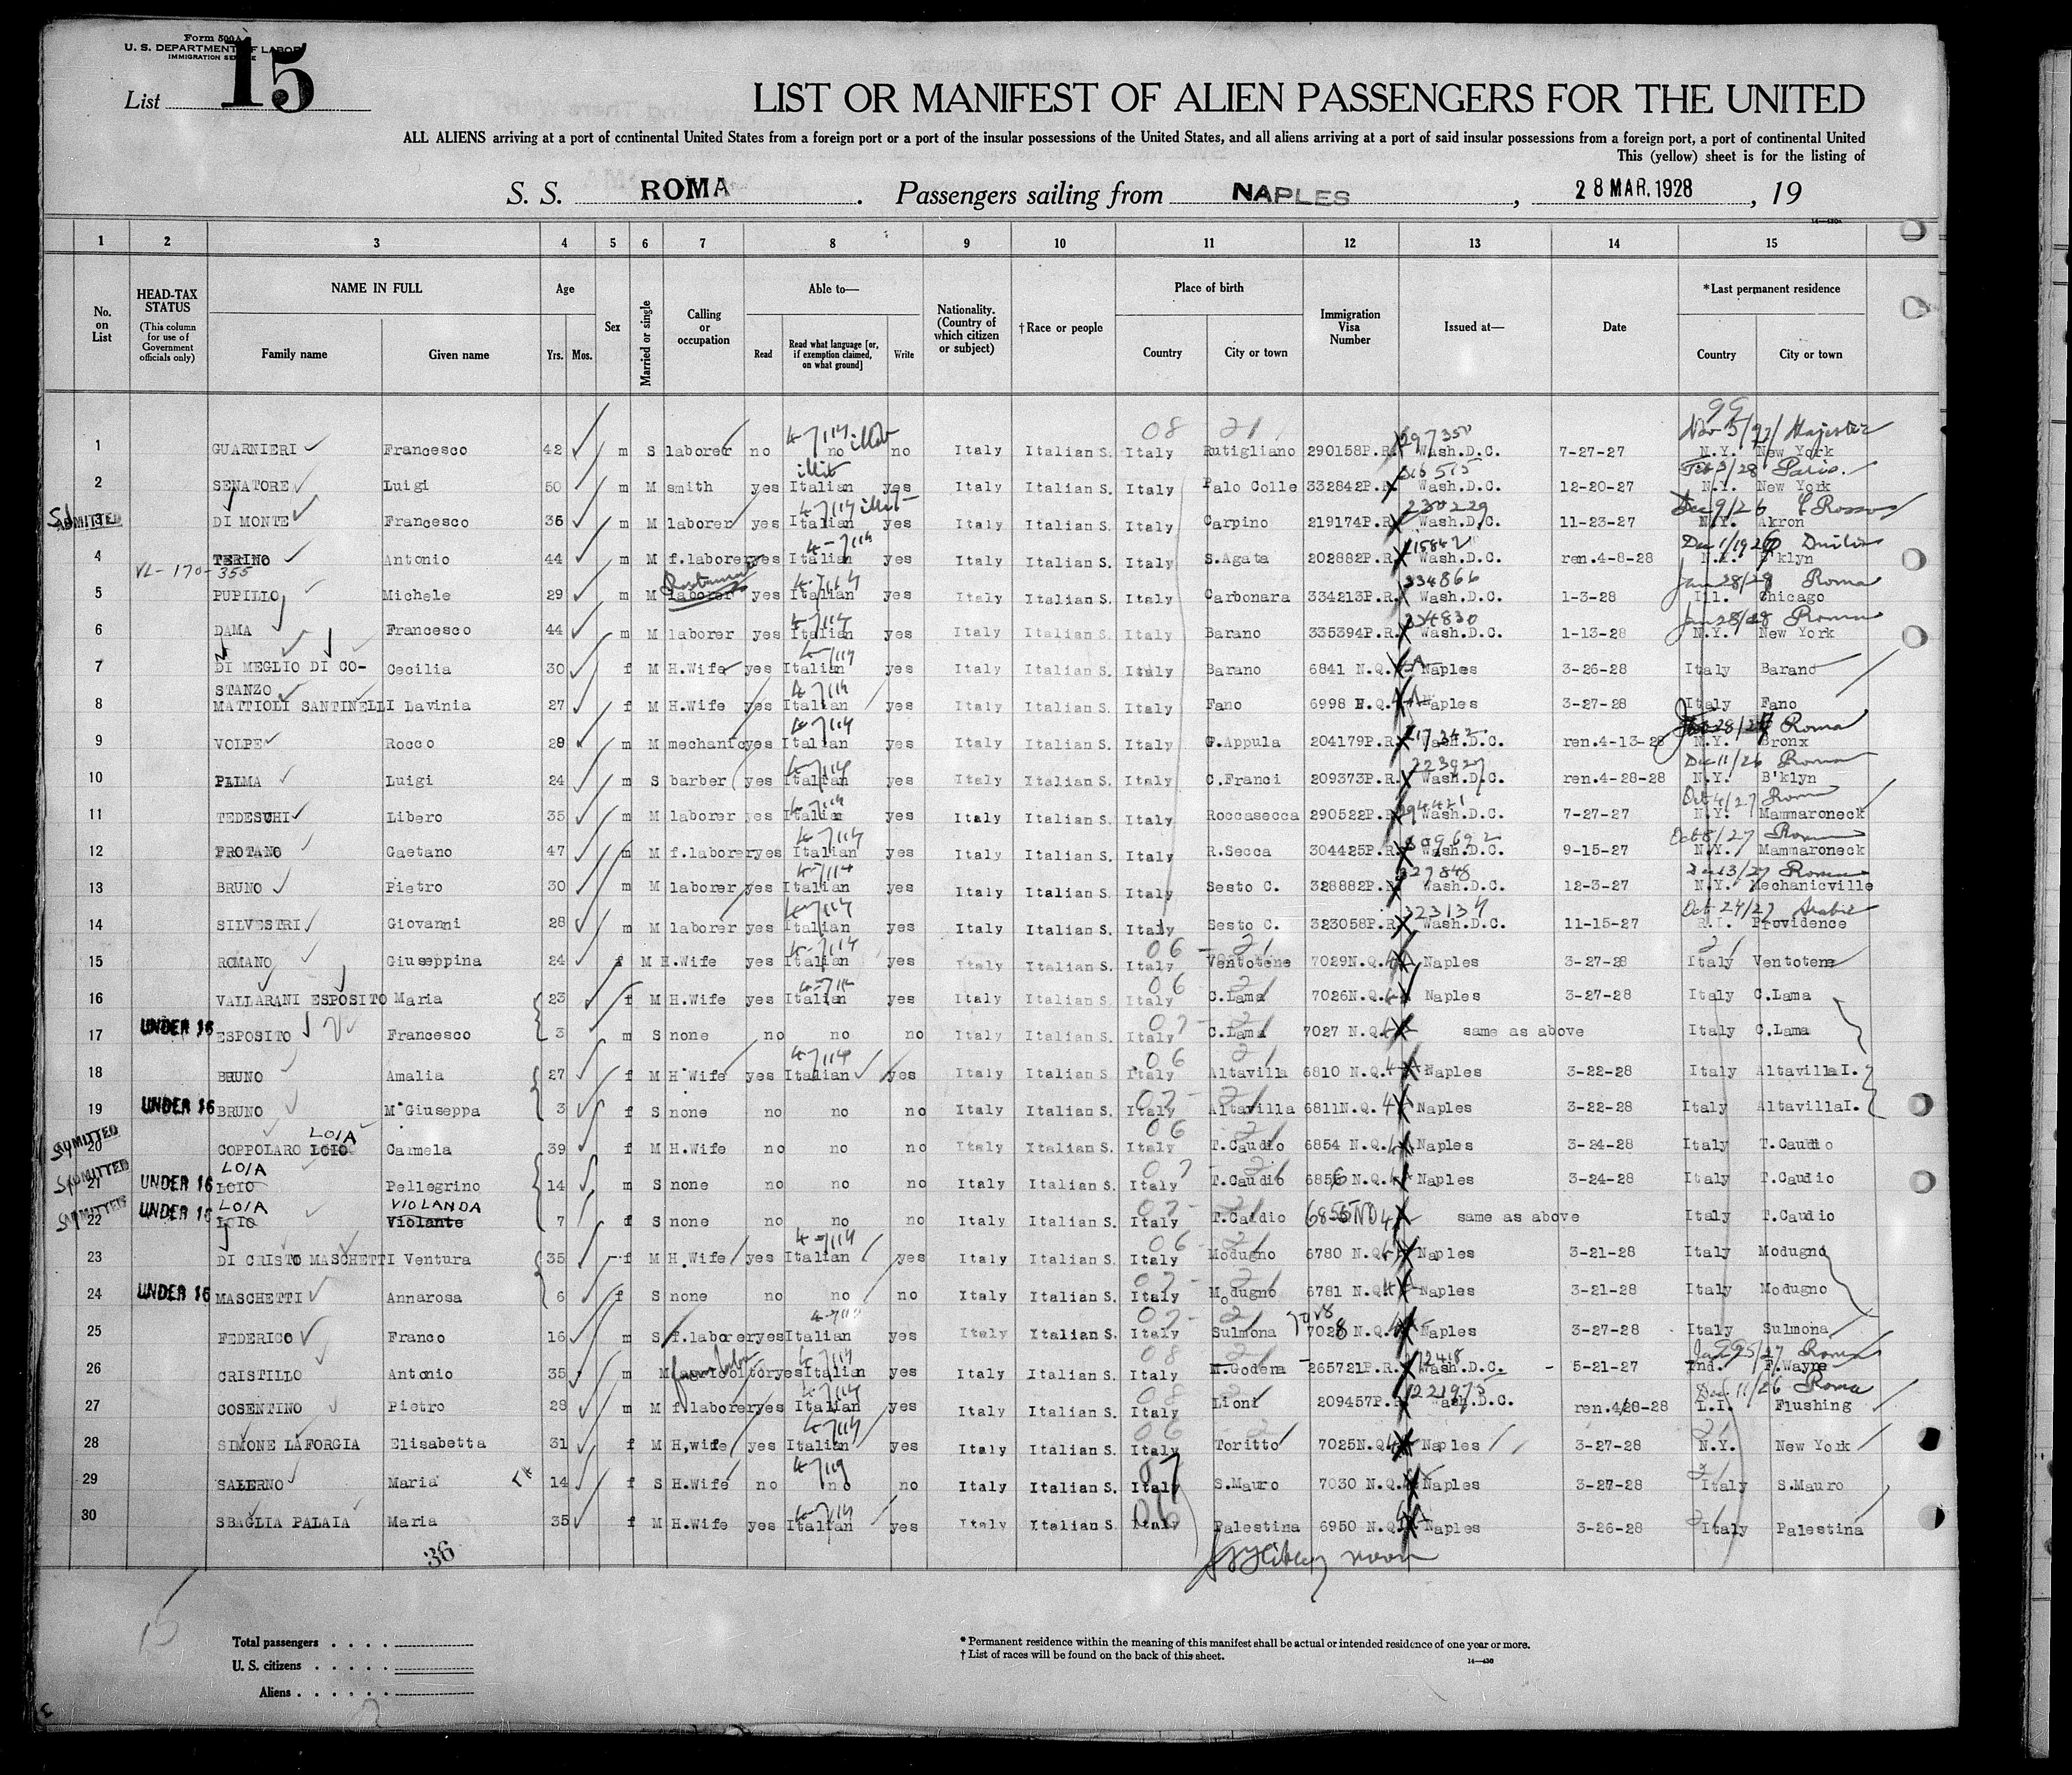 Form 500A
U. S. DEPARTMENT OF LABOR
IMMIGRATION SERVICE
List 15
LIST OR MANIFEST OF ALIEN PASSENGERS FOR THE UNITED
ALL ALIENS arriving at a port of continental United States from a foreign port or a port of the insular possessions of the United States, and all aliens arriving at a port of said insular possessions from a foreign port, a port of continental United
This (yellow) sheet is for the listing of
S. S. ROMA . Passengers sailing from NAPLES , 28 MAR. 1928 , 19
1 2 3 4 5 6 7 8 9 10 11 12 13 14 15
No. on List HEAD-TAX STATUS (This column for use of Government officials only) NAME IN FULL Family name Given name Age Yrs. Mos. Sex Married or single Calling or occupation Able to— Read Read what language [or, if exemption claimed, on what ground] Write Nationality. (Country of which citizen or subject) †Race or people Place of birth Country City or town Immigration Visa Number Issued at— Date *Last permanent residence Country City or town
08 21 99
4-7/14 illit 297350 Nov 5/27 Majestic
1 GUARNIERI Francesco 42 m S laborer no no no Italy Italian S. Italy Rutigliano 290158P.R. Wash.D.C. 7-27-27 N.Y. New York
illit 316515 Feb 3/28 Paris.
2 SENATORE Luigi 50 m M smith yes Italian yes Italy Italian S. Italy Palo Colle 332842P.R. Wash.D.C. 12-20-27 N.Y. New York
4-7/14 illit 230229 Dec 9/26 C Rosso
ADMITTED 3 DI MONTE Francesco 36 m M laborer yes Italian yes Italy Italian S. Italy Carpino 219174P.R. Wash.D.C. 11-23-27 N.Y. Akron
4-7/14 215842 Dec 1/1926 Duilio
4 TERINO Antonio 44 m M f.laborer yes Italian yes Italy Italian S. Italy S.Agata 202882P.R. Wash.D.C. ren.4-8-28 N.Y. B'klyn
VL-170-355 4-7/14 334866 Jan 28/28 Roma
5 PUPILLO Michele 29 m M laborer yes Italian yes Italy Italian S. Italy Carbonara 334213P.R. Wash.D.C. 1-3-28 Ill. Chicago
4-7/14 334830 Jan 28/28 Roma
6 DAMA Francesco 44 m M laborer yes Italian yes Italy Italian S. Italy Barano 335394P.R. Wash.D.C. 1-13-28 N.Y. New York
4-7/14
7 DI MEGLIO DI CO- Cecilia 30 f M H.Wife yes Italian yes Italy Italian S. Italy Barano 6841 N.Q. Naples 3-26-28 Italy Barano
STANZO 4-7/14
8 MATTIOLI SANTINELLI Lavinia 27 f M H.Wife yes Italian yes Italy Italian S. Italy Fano 6998 N.Q. Naples 3-27-28 Italy Fano
4-7/14 217342 Roma
9 VOLPE Rocco 28 m M mechanic yes Italian yes Italy Italian S. Italy G.Appula 204179P.R. Wash.D.C. ren.4-13-28 N.Y. Bronx
4-7/14 223927 Dec 11/26 Roma
10 PALMA Luigi 24 m S barber yes Italian yes Italy Italian S. Italy C.Franci 209373P.R. Wash.D.C. ren.4-28-28 N.Y. B'klyn
4-7/14 294421 Oct 4/27 Roma
11 TEDESCHI Libero 35 m M laborer yes Italian yes Italy Italian S. Italy Roccasecca 290522P.R. Wash.D.C. 7-27-27 N.Y. Mammaroneck
4-7/14 309692 Oct 8/27 Roma
12 PROTANO Gaetano 47 m M f.laborer yes Italian yes Italy Italian S. Italy R.Secca 304425P.R. Wash.D.C. 9-15-27 N.Y. Mammaroneck
4-7/14 327848 Dec 13/27 Roma
13 BRUNO Pietro 30 m M laborer yes Italian yes Italy Italian S. Italy Sesto C. 328882P.R. Wash.D.C. 12-3-27 N.Y. Mechanicville
4-7/14 323134 Oct 24/27 Arabic
14 SILVESTRI Giovanni 28 m M laborer yes Italian yes Italy Italian S. Italy Sesto C. 323058P.R. Wash.D.C. 11-15-27 R.I. Providence
4-7/14 06 - 21 21
15 ROMANO Giuseppina 24 f M H.Wife yes Italian yes Italy Italian S. Italy Ventotene 7029N.Q. Naples 3-27-28 Italy Ventotene
4-7/14 06 21
16 VALLARANI ESPOSITO Maria 23 f M H.Wife yes Italian yes Italy Italian S. Italy C.Lama 7026N.Q. Naples 3-27-28 Italy C.Lama
07 - 21
17 UNDER 16 ESPOSITO Francesco 3 m S none no no no Italy Italian S. Italy C.Lama 7027 N.Q. same as above Italy C.Lama
4-7/14 06 21
18 BRUNO Amalia 27 f M H.Wife yes Italian yes Italy Italian S. Italy Altavilla 6810 N.Q. Naples 3-22-28 Italy AltavillaI.
07 - 21
19 UNDER 16 BRUNO M.Giuseppa 3 f S none no no no Italy Italian S. Italy Altavilla 6811N.Q. Naples 3-22-28 Italy AltavillaI.
LOIA 06 21
ADMITTED 20 COPPOLARO LOIO Carmela 39 f M H.Wife no no no Italy Italian S. Italy T.Caudio 6854 N.Q. Naples 3-24-28 Italy T.Caudio
LOIA 07 - 21
ADMITTED 21 UNDER 16 LOIO Pellegrino 14 m S none no no no Italy Italian S. Italy T.Caudio 6856 N.Q. Naples 3-24-28 Italy T.Caudio
LOIA VIOLANDA 07 - 21
ADMITTED 22 UNDER 16 LOIO Violante 7 f S none no no no Italy Italian S. Italy T.Caudio 6855 NQ same as above Italy T.Caudio
4-7/14 06 - 21
23 DI CRISTO MASCHETTI Ventura 35 f M H.Wife yes Italian yes Italy Italian S. Italy Modugno 6780 N.Q. Naples 3-21-28 Italy Modugno
07 - 21
24 UNDER 16 MASCHETTI Annarosa 6 f S none no no no Italy Italian S. Italy Modugno 6781 N.Q. Naples 3-21-28 Italy Modugno
07 - 21 7028
25 FEDERICO Franco 16 m S f.laborer yes Italian yes Italy Italian S. Italy Sulmona 7028 N.Q. Naples 3-27-28 Italy Sulmona
farm labor 4-7/14 08 21 Roma
26 CRISTILLO Antonio 35 m M agricoltor yes Italian yes Italy Italian S. Italy M.Godena 265721P.R. Wash.D.C. 5-21-27 Ind. F.Wayne
4-7/14 08 221975 Dec. 11/26 Roma
27 COSENTINO Pietro 28 m M f.laborer yes Italian yes Italy Italian S. Italy Lioni 209457P.R. Wash.D.C. ren.4/28-28 L.I. Flushing
4-7/14 06 2 21
28 SIMONE LAFORGIA Elisabetta 31 f M H,wife yes Italian yes Italy Italian S. Italy Toritto 7025N.Q. Naples 3-27-28 N.Y. New York
4-7/14 07
29 SALERNO Maria 14 f S H.Wife no no no Italy Italian S. Italy S.Mauro 7030 N.Q. Naples 3-27-28 Italy S.Mauro
4-7/14 06 21
30 SBAGLIA PALAIA Maria 35 f M H.Wife yes Italian yes Italy Italian S. Italy Palestina 6950 N.Q. Naples 3-26-28 Italy Palestina
36
15
Total passengers
U. S. citizens
Aliens
* Permanent residence within the meaning of this manifest shall be actual or intended residence of one year or more.
† List of races will be found on the back of this sheet.
14—430